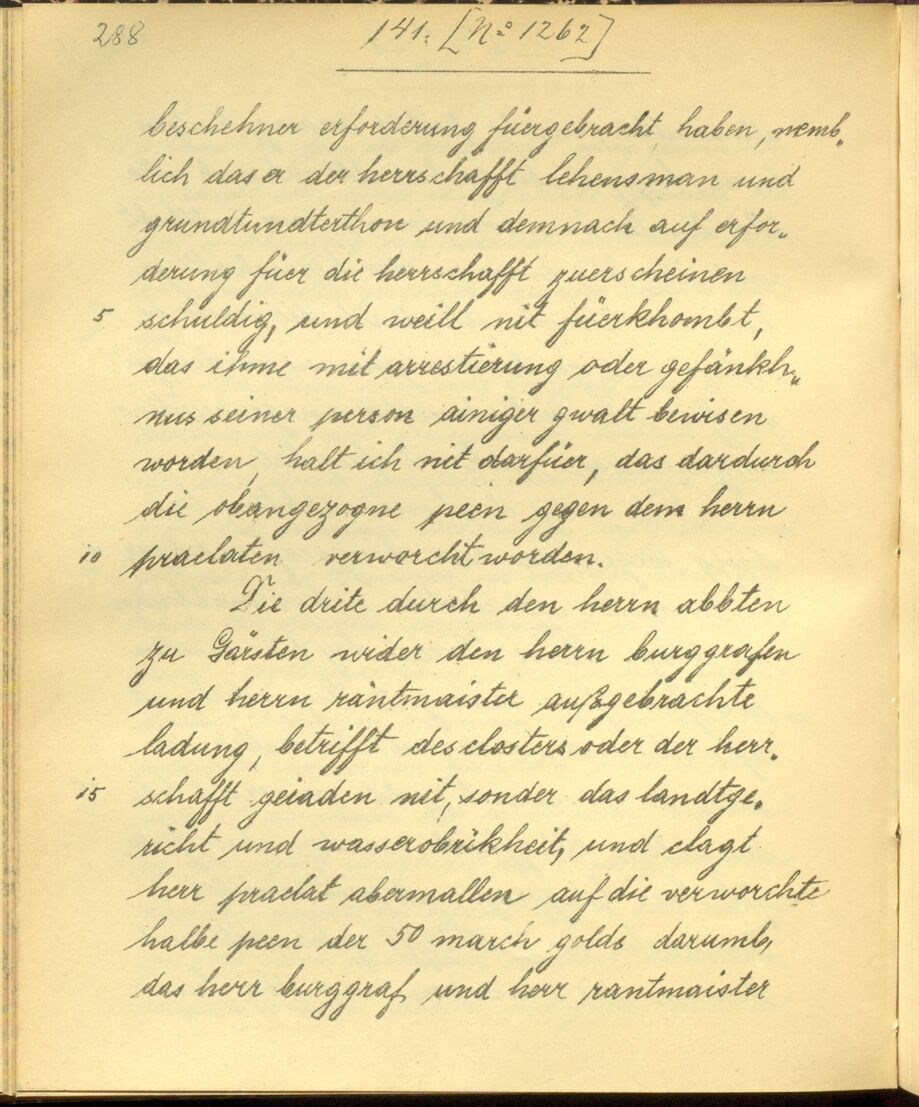 288
141. [Nº 1262]
beschehner erforderung füergebracht haben, nemb„
lich das er der herrschafft lehensman und
grundtundterthon und demnach auf erfor„
derung füer die herrschafft zuerscheinen
5 schuldig, und weill nit füerkhombt,
das ihme mit arrestierung oder gefänkh„
nus seiner person ainiger gwalt bewisen
worden, halt ich nit darfüer, das dardurch
die obangezogne peen gegen dem herrn
10 praelaten verworcht worden.
Die drite durch den herrn abbten
zu Gärsten wider den herrn burggrafen
und herrn räntmaister außgebrachte
ladung, betrifft des closters oder der herr„
15 schafft geiaden nit, sonder das landtge„
richt und wasserobrikheit, und clagt
herr praelat abermallen auf die verworchte
halbe peen der 50 march golds darumb,
das herr burggraf und herr rantmaister